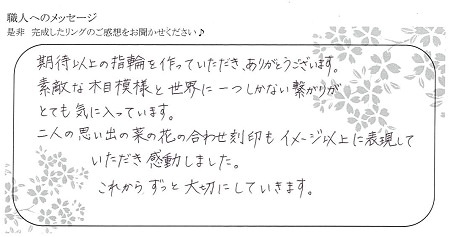 職人へのメッセージ
是非 完成したリングのご感想をお聞かせください♪
期待以上の指輪を作っていただき、ありがとうございます。
素敵な木目模様と世界に一つしかない繋がりが
とても気に入っています。
二人の思い出の菜の花の合わせ刻印もイメージ以上に表現して
いただき感動しました。
これからずっと大切にしていきます。